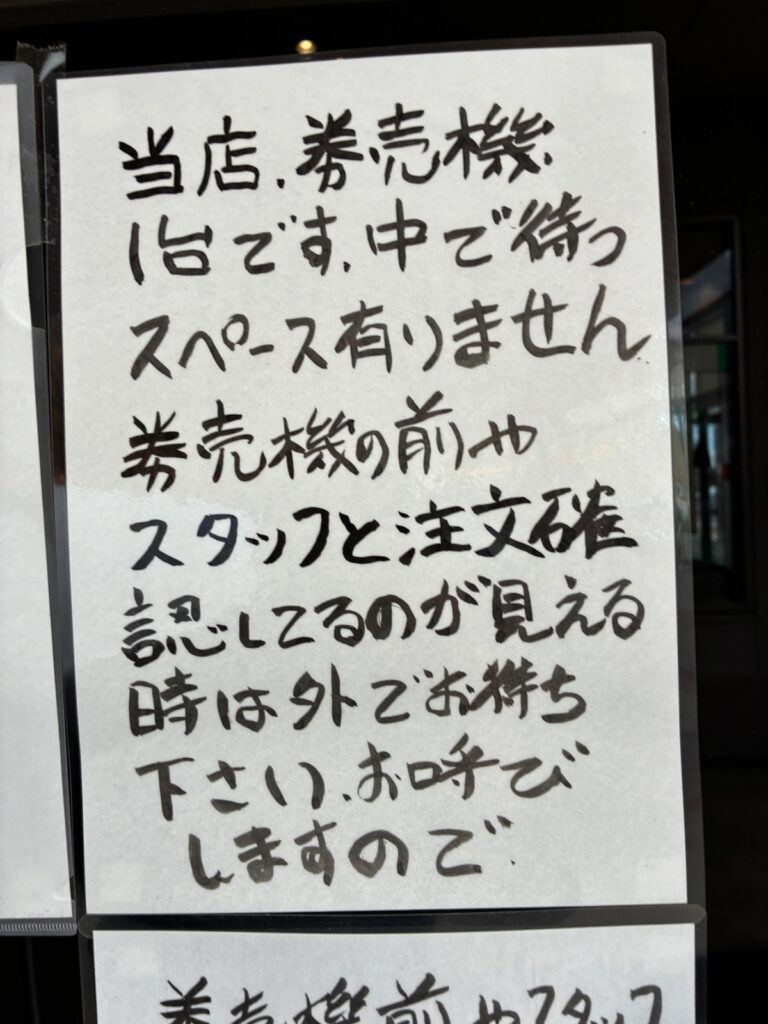 当店、券売機
1台です、中で待つ
スペース有りません
券売機の前や
スタッフと注文確
認してるのが見える
時は外でお待ち
下さい、お呼び
しますので
券売機前やスタッフ